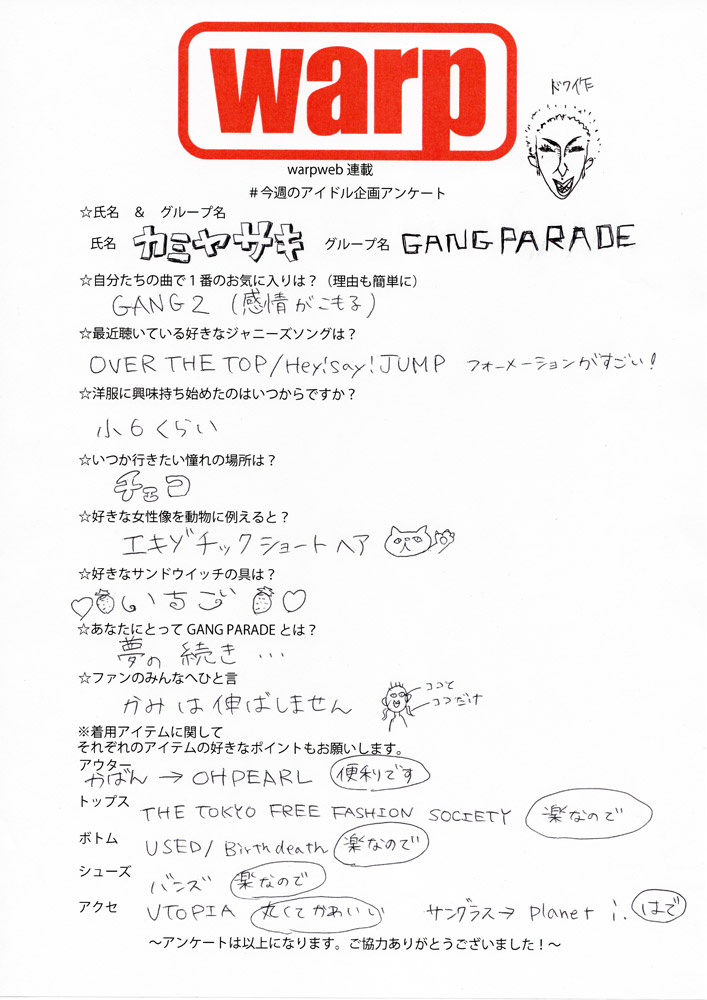 warp
ドワイ作
warpweb 連載
＃今週のアイドル企画アンケート
☆氏名　&　グループ名
氏名　カミヤサキ　グループ名　GANG PARADE
☆自分たちの曲で１番のお気に入りは？（理由も簡単に）
GANG 2 (感情がこもる)
☆最近聴いている好きなジャニーズソングは？
OVER THE TOP/Hey!Say!JUMP フォーメーションがすごい!
☆洋服に興味持ち始めたのはいつからですか？
小6くらい
☆いつか行きたい憧れの場所は？
チェコ
☆好きな女性像を動物に例えると？
エキゾチックショートヘア
☆好きなサンドウイッチの具は？
♡いちご♡
☆あなたにとって GANG PARADE とは？
夢の続き…
☆ファンのみんなへひと言
かみは伸ばしません
ココと
ココだけ
※着用アイテムに関して
それぞれのアイテムの好きなポイントもお願いします。
アウター
かばん → OH PEARL 便利です
トップス THE TOKYO FREE FASHION SOCIETY 楽なので
ボトム USED/Birthdeath 楽なので
シューズ バンズ 楽なので
アクセ UTOPIA 丸くてかわいい サングラス→ planet i. はで
～アンケートは以上になります。ご協力ありがとうございました！～